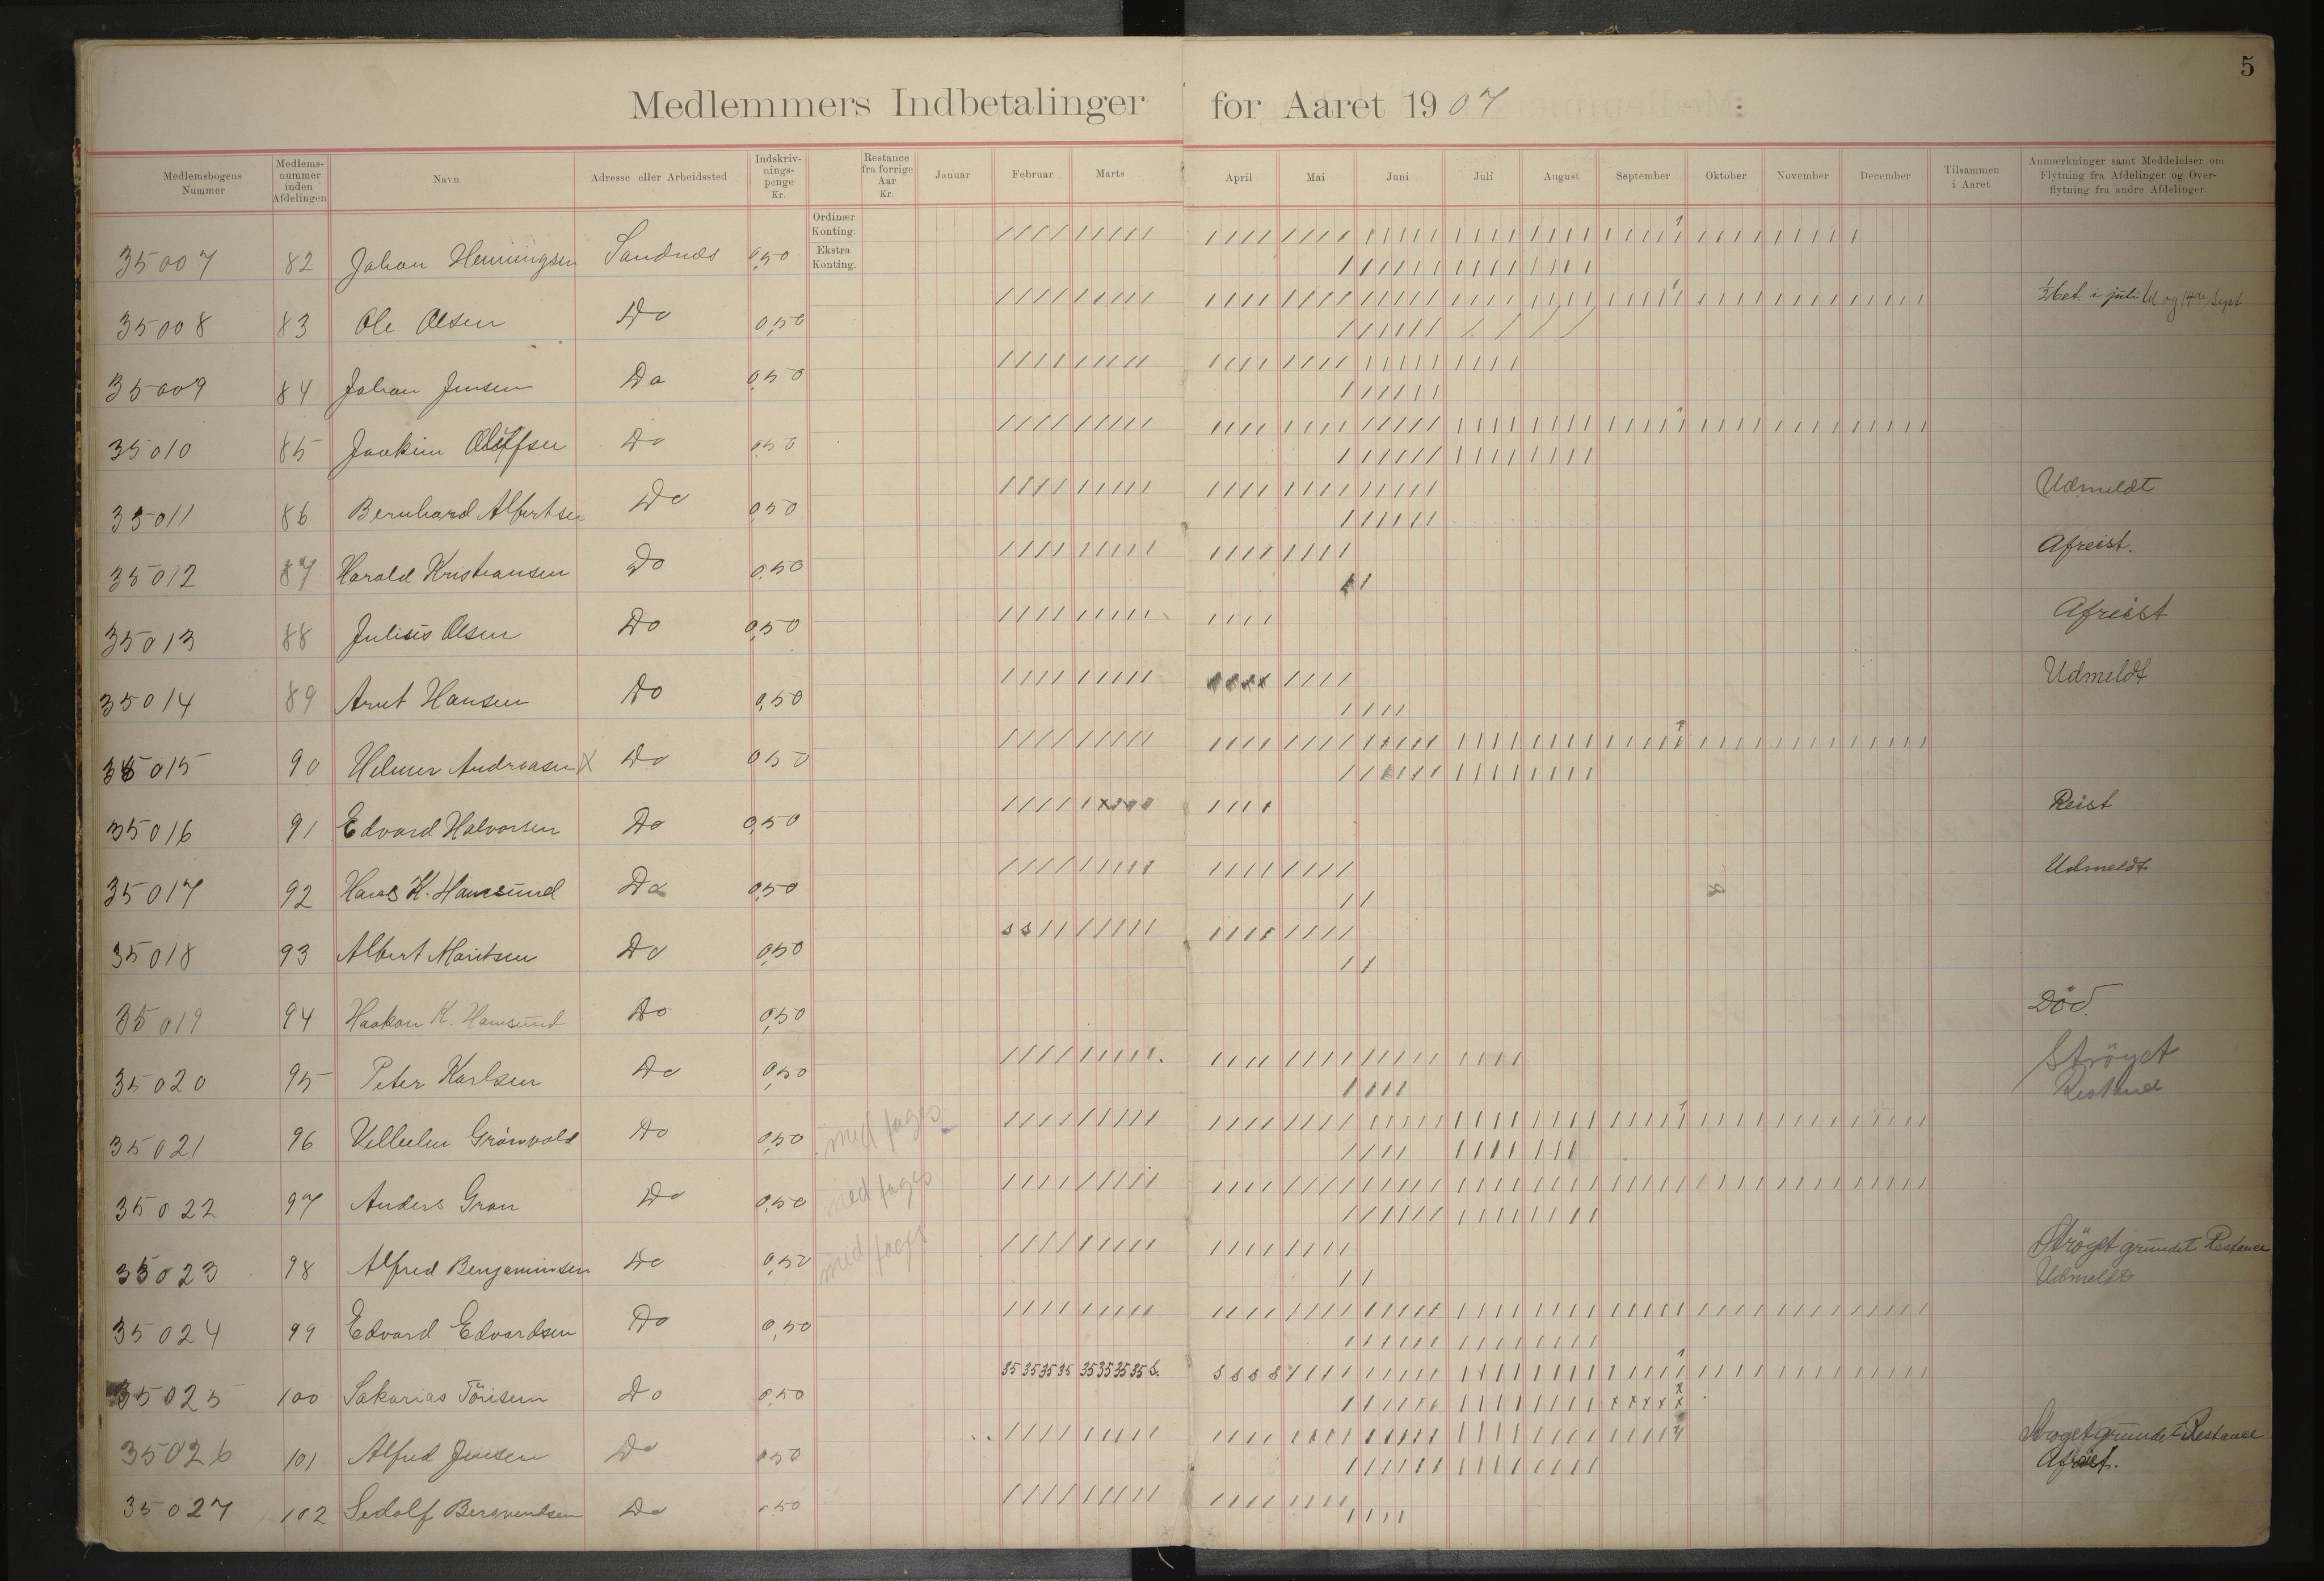 5
Medlemmers Indbetalinger for Aaret 1907
Medlemsbogens Nummer | Medlems-nummer inden Afdelingen | Navn | Adresse eller Arbeidssted | Indskriv-nings-penge Kr. | Restance fra forrige Aar Kr. | Januar | Februar | Marts | April | Mai | Juni | Juli | August | September | Oktober | November | December | Tilsammen i Aaret | Anmærkninger samt Meddelelser om Flytning fra Afdelinger og Over-flytning fra andre Afdelinger.
Ordinær Konting.
Ekstra Konting.
35007 82 Johan Henningsen Sandnæs 0,50
35008 83 Ole Olsen Do 0,50 i juli og Sept
35009 84 Johan Jensen Do 0,50
35010 85 Joakim Do 0,50
35011 86 Bernhard Albertsen Do 0,50 Udmeldt
35012 87 Harald Kristiansen Do 0,50 Afreist.
35013 88 Julius Olsen Do 0,50 Afreist
35014 89 Arnt Hansen Do 0,50 Udmeldt
35015 90 Helmer Andreasen X Do 0,50
35016 91 Edvard Halvorsen Do 0,50 Reist
35017 92 Hans K. Hamsund Do 0,50 Udmeldt
35018 93 Albert Moritsen Do 0,50
35019 94 Haakon K. Hamsund Do 0,50 Död.
35020 95 Peter Karlsen Do 0,50 Ströget
Restance
35021 96 Vilhelm Grönvold Do 0,50 med
35022 97 Anders Gran Do 0,50 med
35023 98 Alfred Benjaminsen Do 0,50 med Ströget grundet Restance
Udmeldt
35024 99 Edvard Edvardsen Do 0,50
35 35 35 35 35 35 35 35 S. S S S S
35025 100 Sakarias Do 0,50
35026 101 Alfred Jensen Do 0,50 Stroget grundet Restance
Afreist.
35027 102 Sedolf Bersvendsen Do 0,50